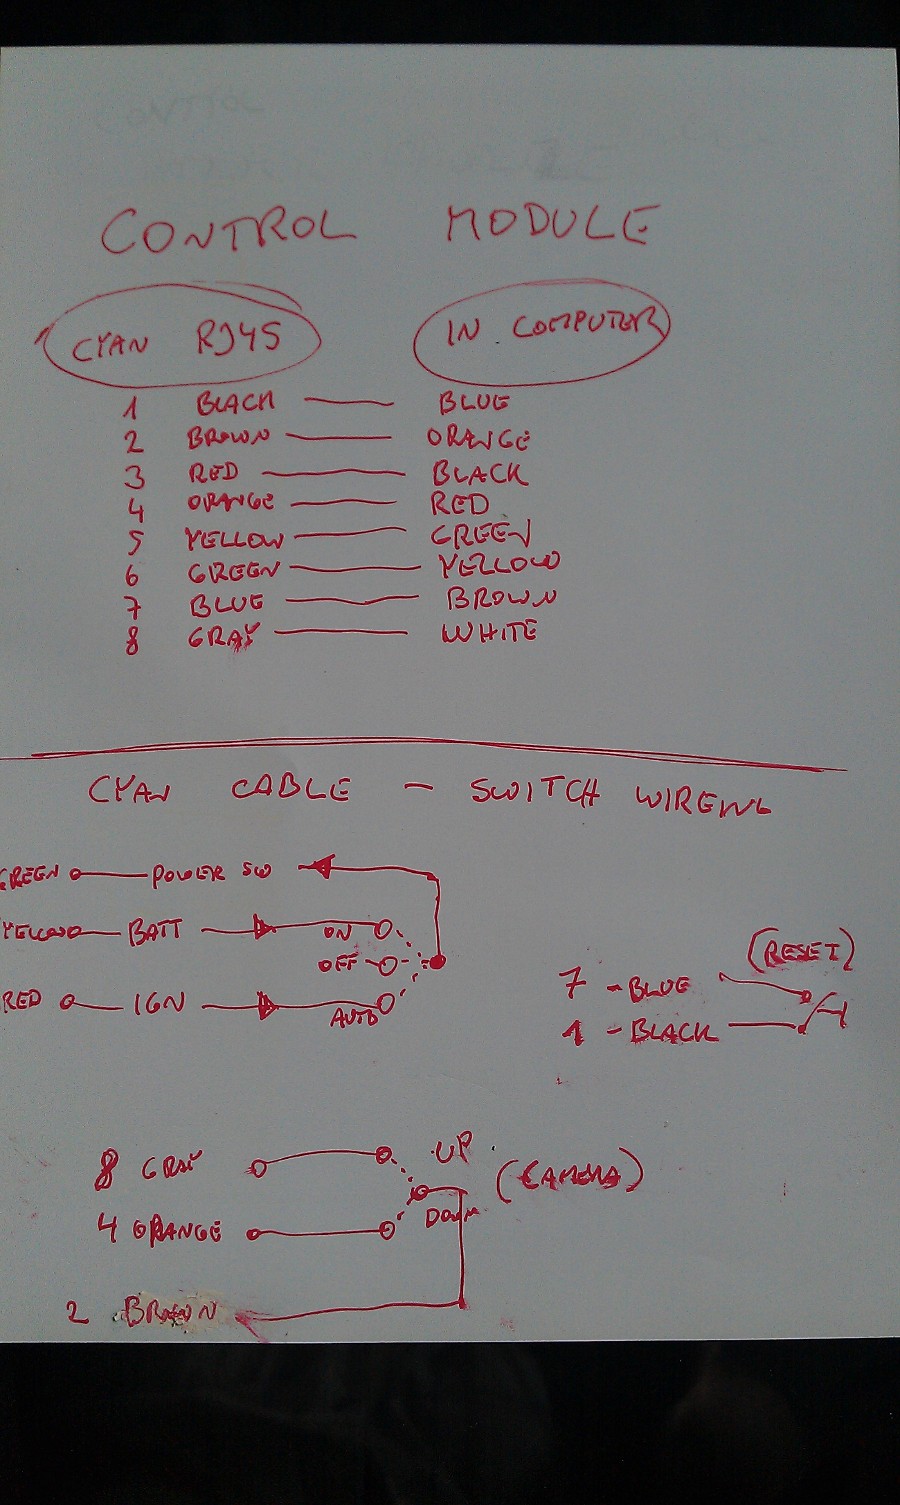 CONTROL MODULE
CYAN RJ45 IN COMPUTER
1 BLACK BLUE
2 BROWN ORANGE
3 RED BLACK
4 ORANGE RED
5 YELLOW GREEN
6 GREEN YELLOW
7 BLUE BROWN
8 GRAY WHITE
CYAN CABLE - SWITCH WIREING
GREEN POWER SW
YELLOW BATT ON
OFF
RED IGN AUTO
(RESET)
7 - BLUE
1 - BLACK
8 GRAY UP
(CAMERA)
4 ORANGE DOWN
2 BROWN